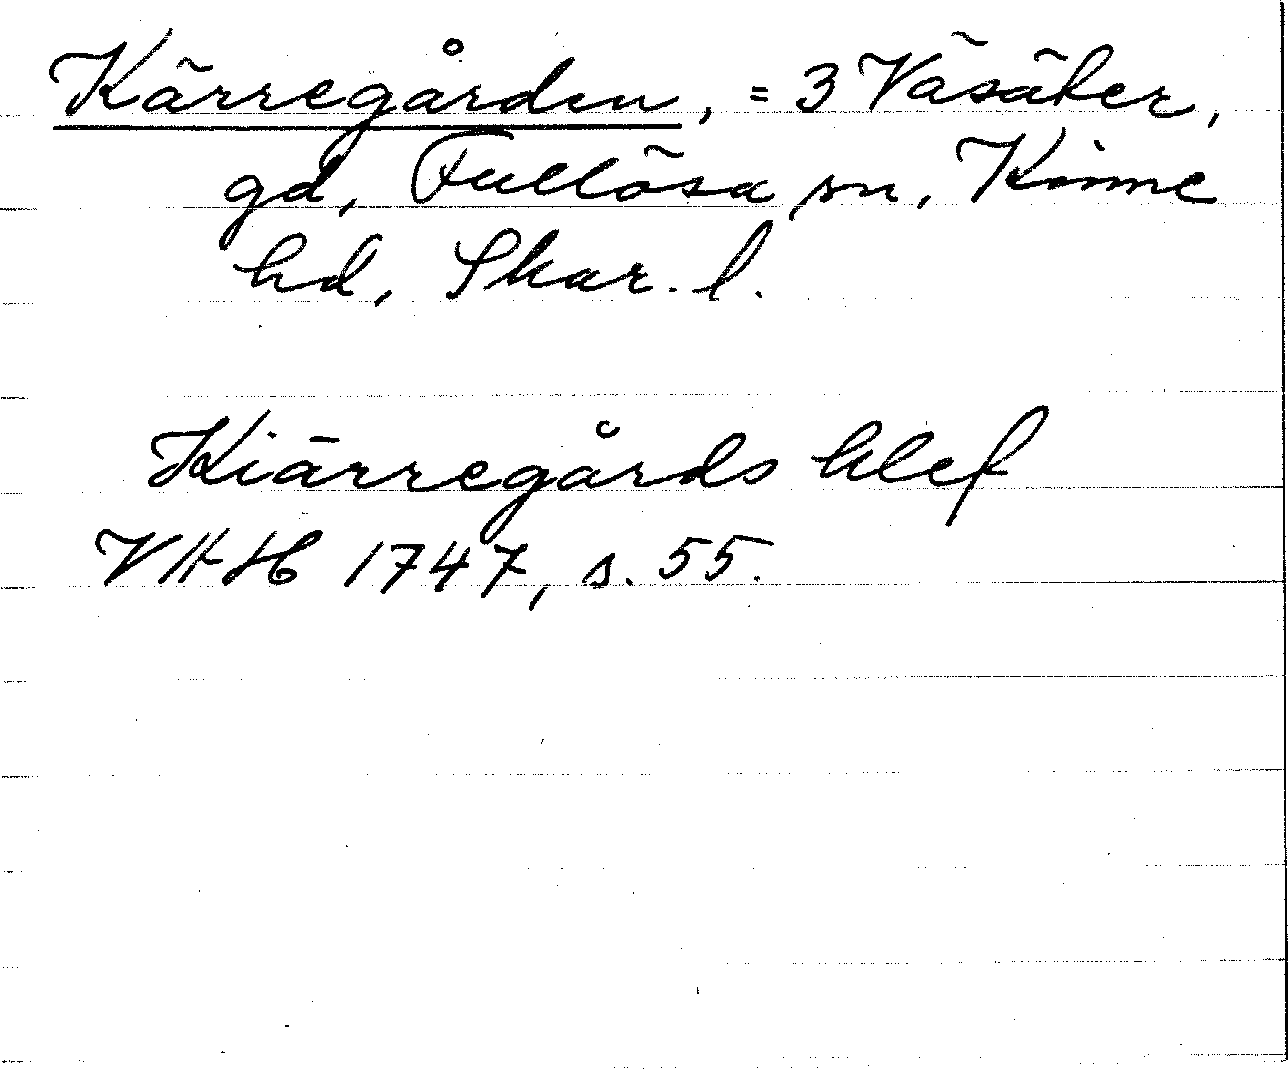 Kärregården, = 3 Väsäter,
gd, Fullösa sn, Kinne
hd, Skar. l.
Kiärregårds klef
VHH 1747, s. 55.